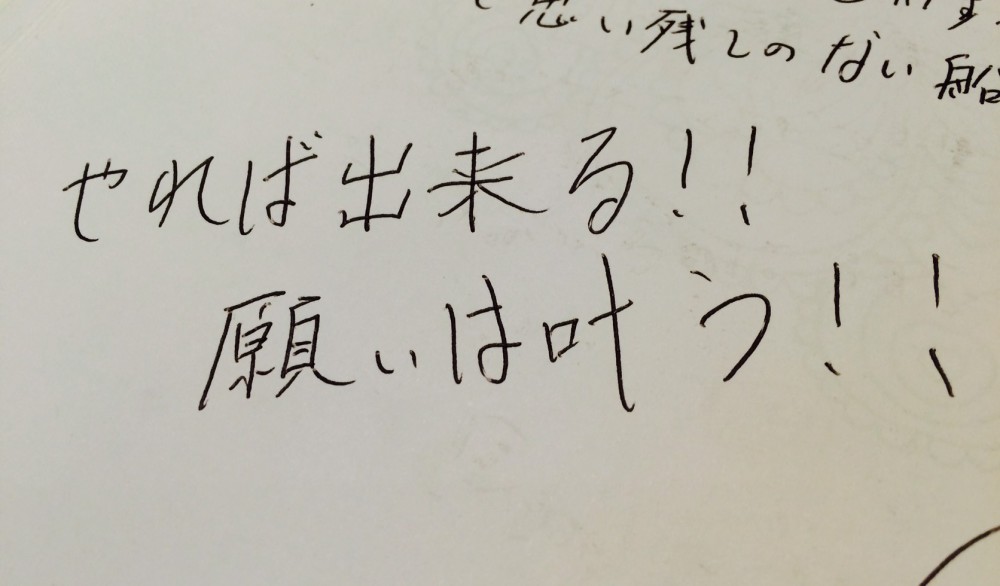 思い残しのない船
やれば出来る!!
願いは叶う!!